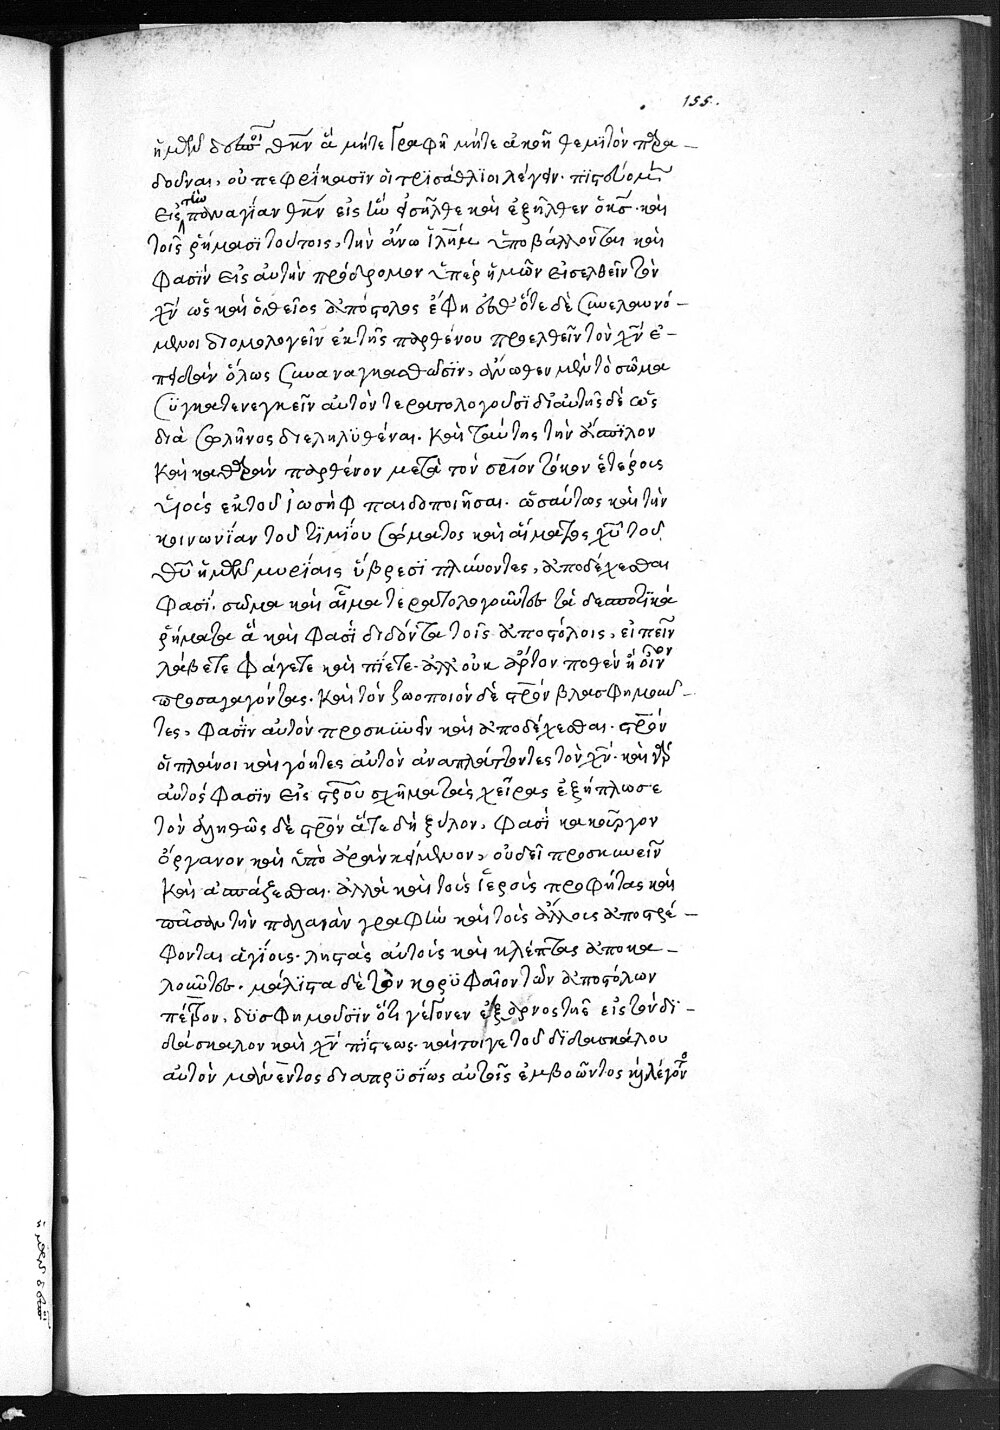 155.
ἡμῶν δεσποι θκν ἃ μήτε γραφῆ μήτε ἀκοῆ θεμιτὸν παρα-
δοῦναι, οὐ πεφρίκασιν οἱ τρισάθλιοι λέγειν. πιστεύομεν
εἰς τὴν παναγίαν θκν εἰς ἣν εἰσῆλθε καὶ ἐξῆλθεν ὁ κς. καὶ
τοῖς ῥήμασι τούτοις, τὴν ἄνω ἱλημ ὑποβάλλονται καὶ
φασὶν εἰς αὐτὴν πρόδρομον ὑπὲρ ἡμῶν εἰσελθεῖν τὸν
χν ὡς καὶ ὁ θεῖος ἀπόστολος ἔφη ὅτε δὲ συνελαυνό-
μενοι διομολογεῖν ἐκ τῆς παρθένου προελθεῖν τὸν χν ἐ-
πειδὰν ὅλως συναναγκασθῶσιν, ἄνωθεν μὲν τὸ σῶμα
συγκατενεγκεῖν αὐτὸν τερατολογοῦσι δι' αὐτῆς δὲ ὡς
διὰ σωλῆνος διεληλυθέναι. καὶ ταύτης τὴν ἄσπιλον
καὶ καθαρὰν παρθένον μετὰ τὸν σριον τόκον ἑτέροις
υἱοὺς ἐκ τοῦ ἰωσὴφ παιδοποιῆσαι. ὡσαύτως καὶ τὴν
κοινωνίαν τοῦ τιμίου σώματος καὶ αἵματος χυ τοῦ
θυ ἡμῶν μυρίαις ὕβρεσι πλύνοντες, ἀποδέχεσθαι
φασί. σῶμα καὶ αἷμα τερατολογοῦντες τὰ δεσποτικὰ
ῥήματα ἃ καὶ φασὶ διδόντα τοῖς ἀποστόλοις, εἰπεῖν
λάβετε φάγετε καὶ πίετε. ἀλλ' οὐκ ἄρτον ποθὲν ἢ οἶνον
προσαγαγόντας. καὶ τὸν ζωοποιὸν δὲ στρὸν βλασφημοῦν-
τες, φασὶν αὐτὸν προσκυνεῖν καὶ ἀποδέχεσθαι. στρὸν
οἱ πλάνοι καὶ γόητες αὐτὸν ἀναπλάττοντες τὸν χν. καὶ γὰρ
αὐτός φασιν εἰς στρου σχῆμα τὰς χεῖρας ἐξήπλωσε
τὸν ἀληθῶς δὲ στρὸν ἅτε δὴ ξύλον, φασὶ κακούργον
ὄργανον καὶ ὑπὸ ἀρὰν κείμενον, οὐ δεῖ προσκυνεῖν
καὶ ἀσπάζεσθαι. ἀλλὰ καὶ τοὺς ἱεροὺς προφήτας καὶ
πᾶσαν τὴν παλαιὰν γραφὴν καὶ τοὺς ἄλλοις ἀποστρέ-
φονται ἁγίοις. ληστὰς αὐτοὺς καὶ κλέπτας ἀποκα-
λοῦντες. μάλιστα δὲ τὸν κορυφαῖον τῶν ἀποστόλων
πέτρον, δυσφημοῦσιν ὅτι γέγονεν ἔξαρνος τῆς εἰς τὸν δι-
δάσκαλον καὶ χν πίστεως. καίτοιγε τοῦ διδασκάλου
αὐτὸν μανέντος διαπρυσίως αὐτοῖς ἐμβοῶντος κἂν λέγοντος